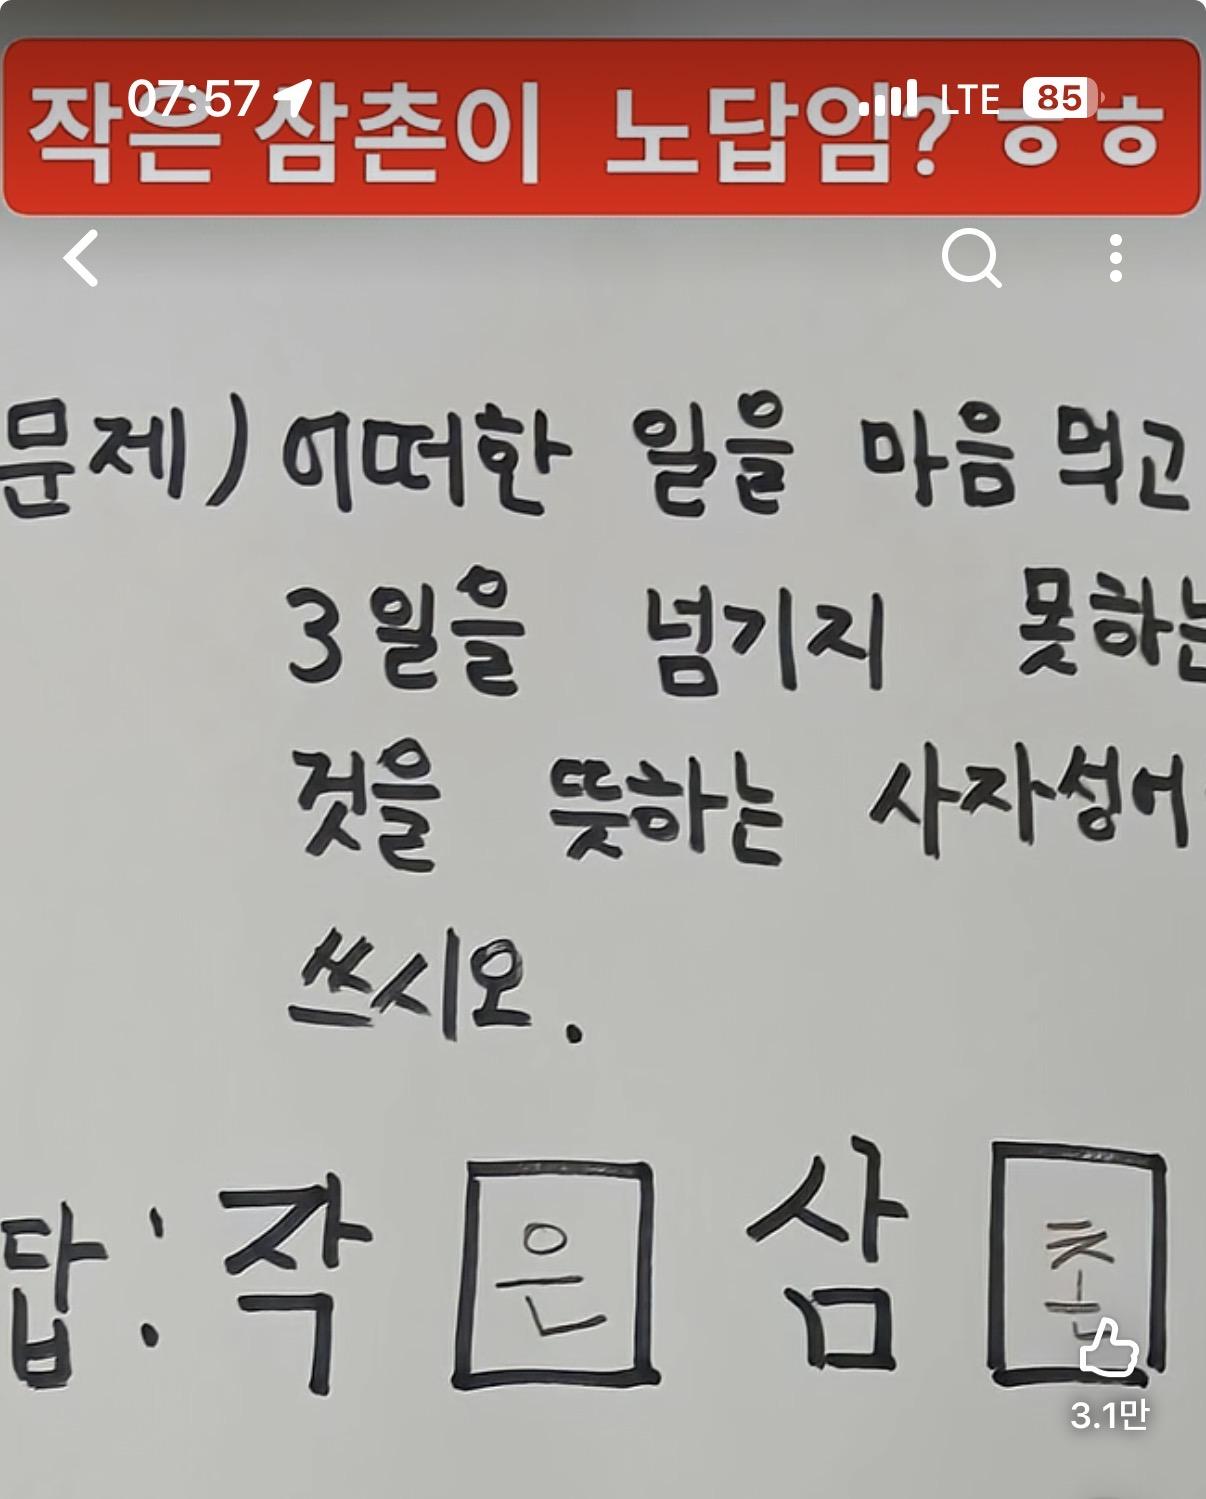 작은삼촌이 노답임? ㅎㅎ
07:57 LTE 85
문제) 어떠한 일을 마음 먹고
3일을 넘기지 못하는
것을 뜻하는 사자성어
쓰시오.
답: 작 은 삼 촌
3.1만